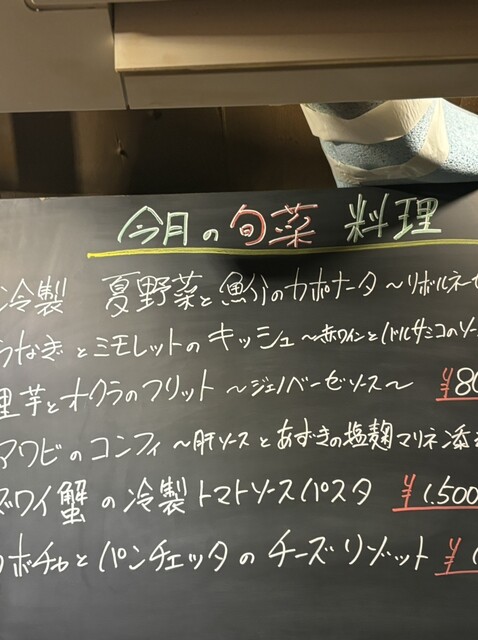 今月の旬菜 料理
冷製 夏野菜と魚介のカポナータ〜リボルネーゼ
うなぎとミモレットのキッシュ〜赤ワインとバルサミコのソー
里芋とオクラのフリット〜ジェノベーゼソース〜 ¥80
アワビのコンフィ〜肝ソースとあずきの塩麹マリネ添
ズワイ蟹の冷製トマトソースパスタ ¥1,500
カボチャとパンチェッタのチーズリゾット ¥1